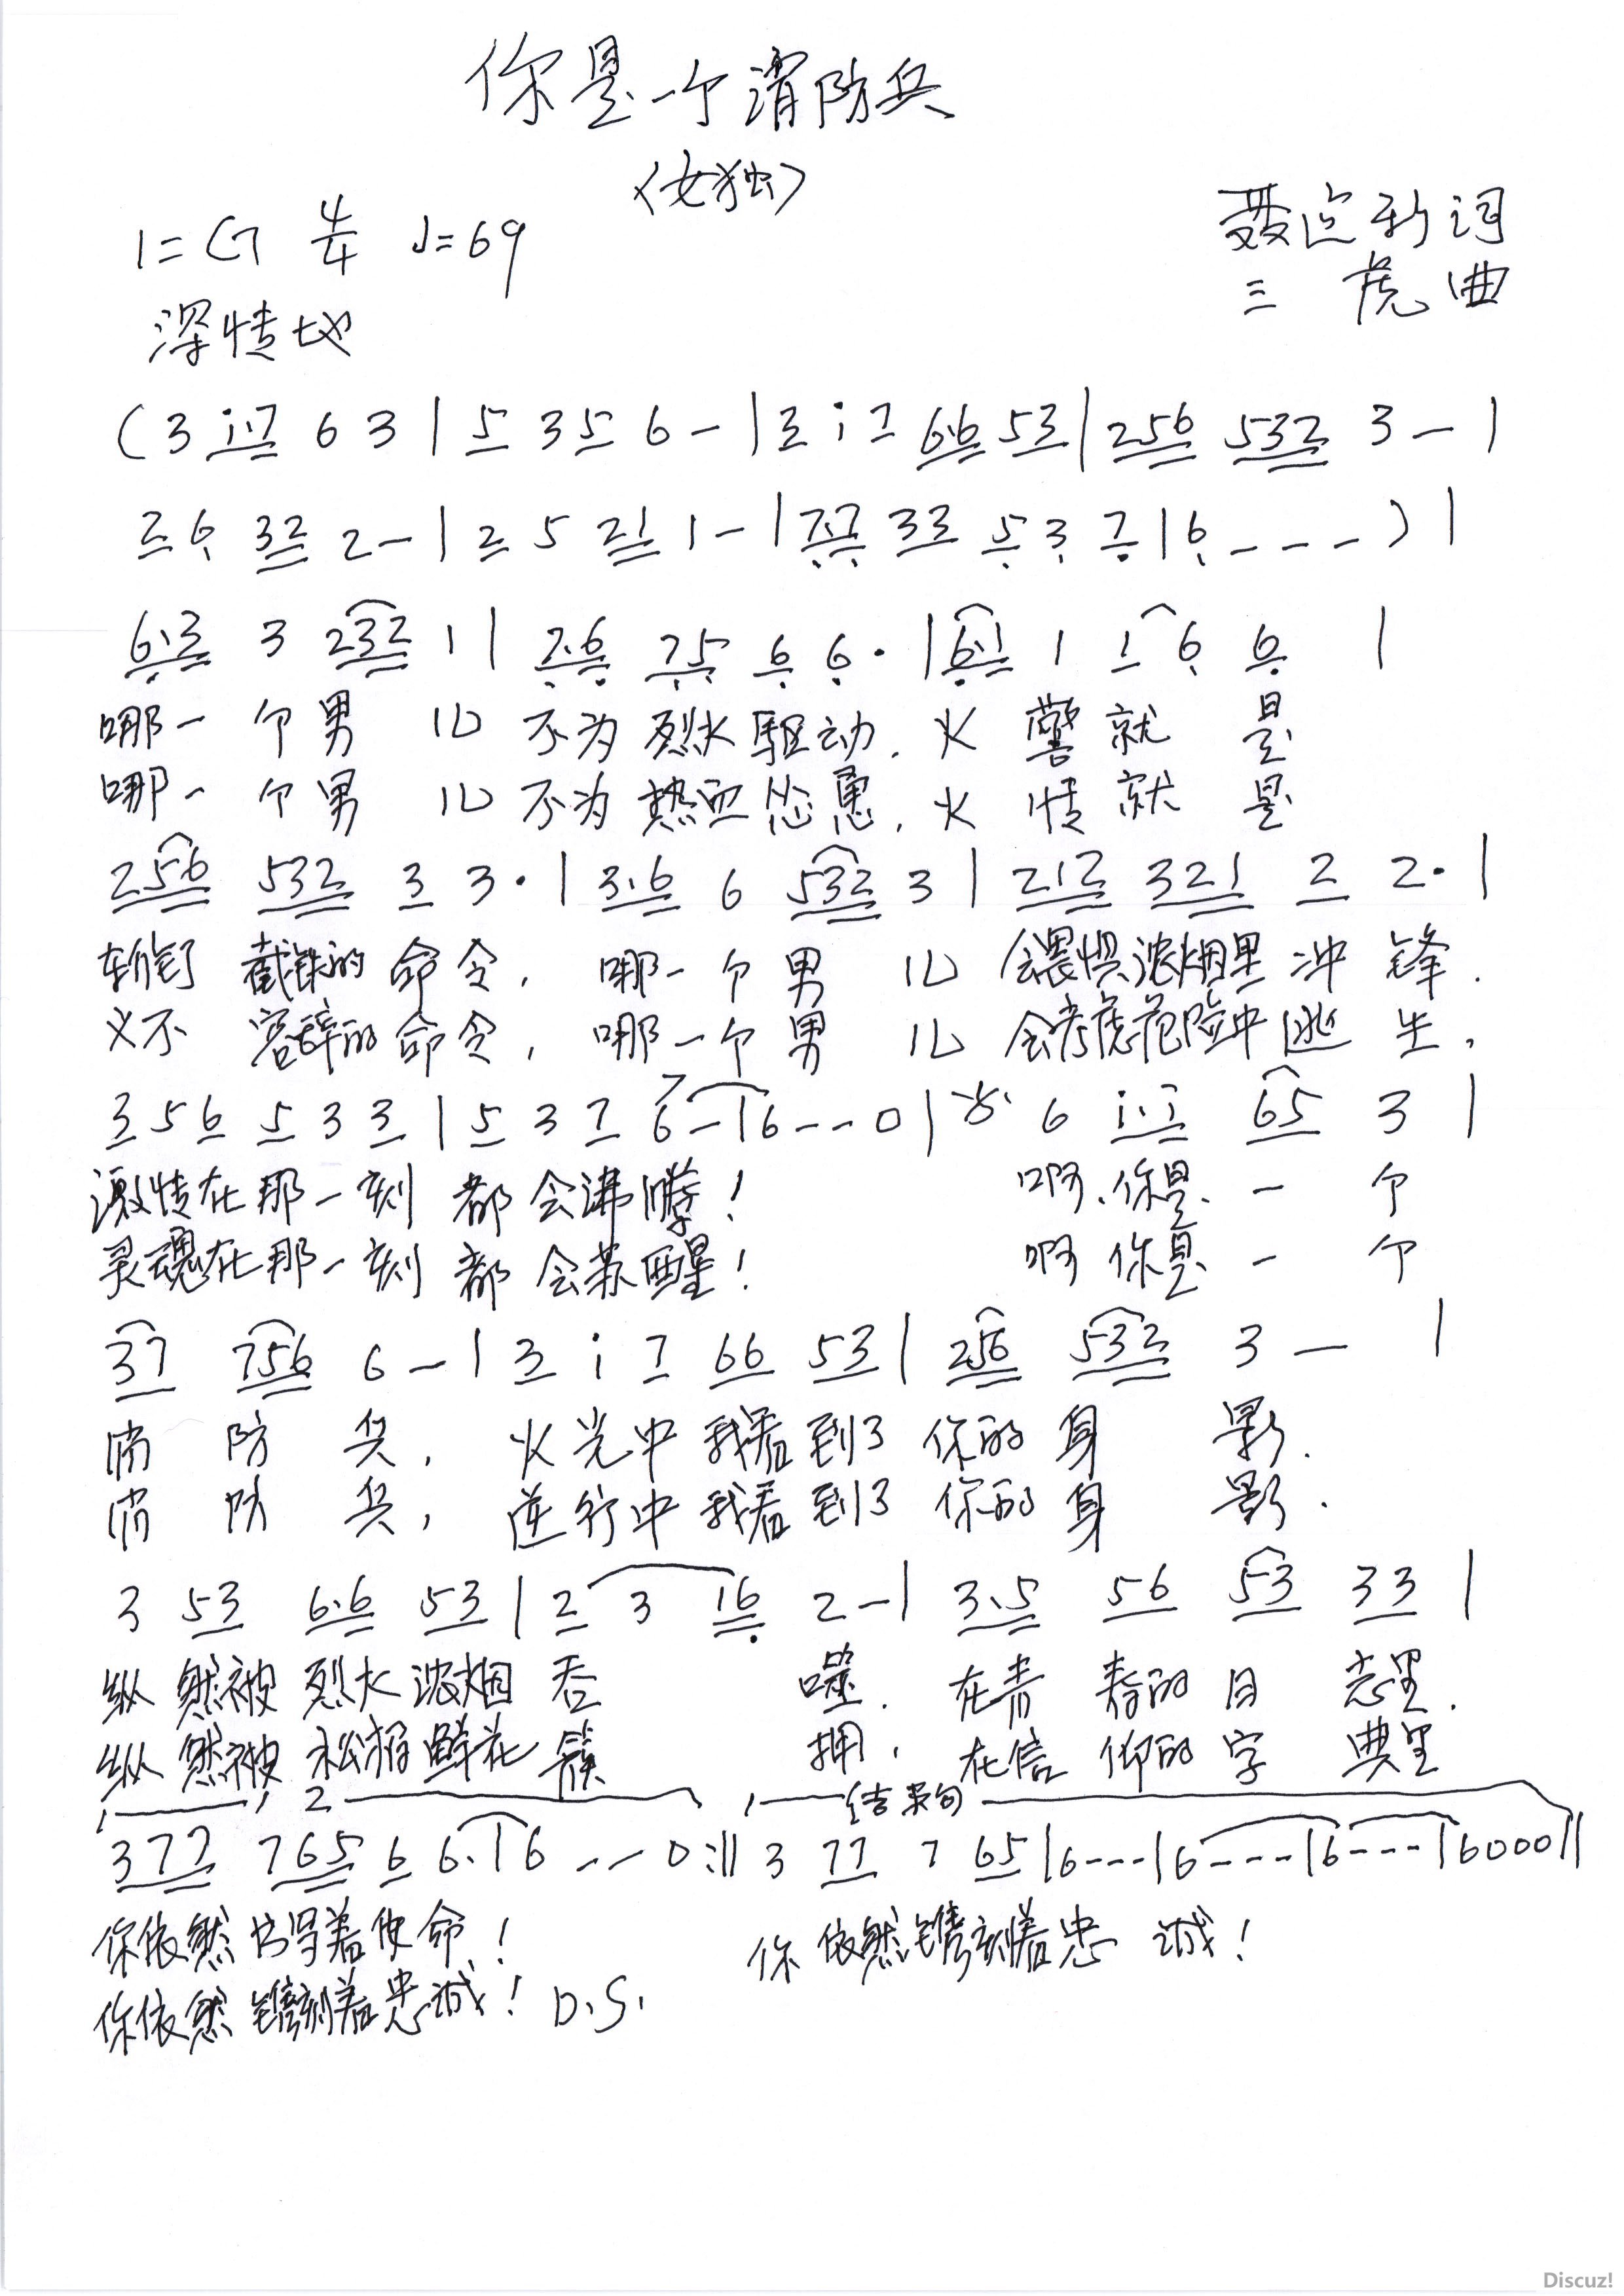 你是一个消防兵
(女独)
1=G 4/4 ♩=69
聂迎新 词
深情地
三虎 曲
(3 i·7 6 3 | 5 3 5 6 - | 3 i 7 6·6 53 | 256 532 3 - |
2 6 32 2 - | 2 5 21 1 - | 7·7 33 5 3 7 | 6 - - - ) |
6·3 3 232 1 | 7·6 75 6 6· | 6·1 1 1 6 6 |
哪一个男儿不为烈火驱动，火警就是
哪一个男儿不为热血怂恿，火情就是
256 532 3 3· | 3·6 6 532 3 | 212 321 2 2· |
斩钉截铁的命令，哪一个男儿会畏惧浓烟里冲锋．
义不容辞的命令，哪一个男儿会考虑危险中逃生，
3 5 6 5 3 3 | 5 3 7 6 - | 6 - - 0 | 𝄋 6 i·i 65 3 |
激情在那一刻都会沸腾！啊．你是一个
灵魂在那一刻都会苏醒！啊你是一个
37 756 6 - | 3 i 7 66 53 | 256 532 3 - |
消防兵，火光中我看到了你的身影．
消防兵，逆行中我看到了你的身影．
3 53 6·6 53 | 2 3 16 2 - | 3·5 56 53 33 |
纵然被烈火浓烟吞噬．在青春的日志里．
纵然被松柏鲜花簇拥，在信仰的字典里
1 2 结束句
377 765 6 6· | 6 - - 0 :‖ 3 77 7 65 | 6 - - - | 6 - - - | 6 - - - | 6000 ‖
你依然书写着使命！你依然镌刻着忠诚！
你依然镌刻着忠诚！D.S.
Discuz!